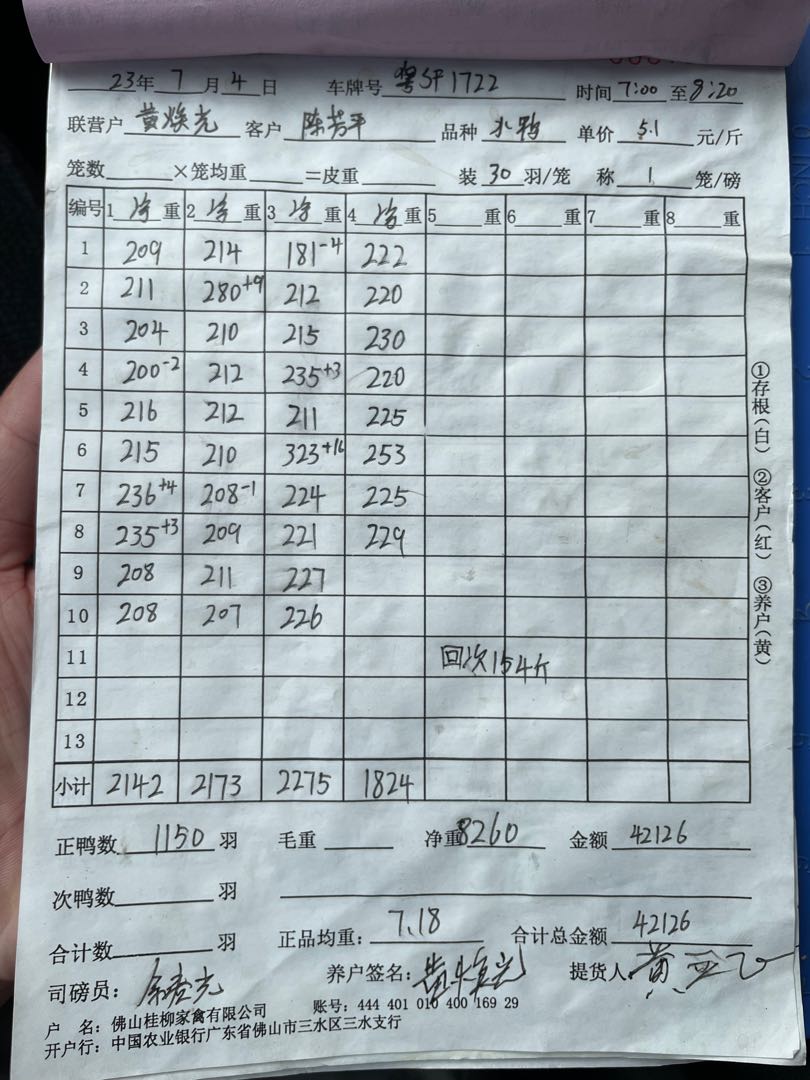 23年 7 月 4 日 车牌号 粤SF1722 时间 7:00 至 8:20
联营户 黄焕光 客户 陈芳平 品种 水鸭 单价 5.1 元/斤
笼数 ×笼均重 =皮重 装 30 羽/笼 称 1 笼/磅
编号 1 净 重 2 净 重 3 净 重 4 净 重 5 重 6 重 7 重 8 重
1 209 214 181-4 222
2 211 280+9 212 220
3 204 210 215 230
4 200-2 212 235+3 220
5 216 212 211 225
6 215 210 323+16 253
7 236+4 208-1 224 225
8 235+3 209 221 229
9 208 211 227
10 208 207 226
11 回次154斤
12
13
小计 2142 2173 2275 1824
正鸭数 1150 羽 毛重 净重 8260 金额 42126
次鸭数 羽
合计数 羽 正品均重: 7.18 合计总金额 42126
司磅员: 养户签名: 黄焕光 提货人: 黄
户 名: 佛山桂柳家禽有限公司 账号: 444 401 010 400 169 29
开户行: 中国农业银行广东省佛山市三水区三水支行
①存根(白) ②客户(红) ③养户(黄)